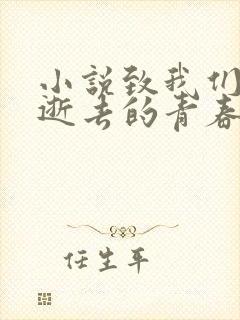 小说致我们
逝去的青春
任生平